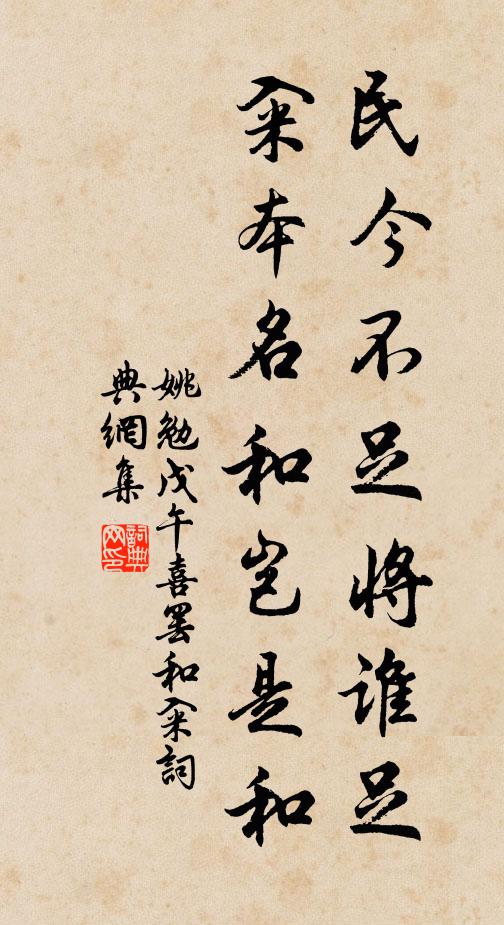 民今不足將誰足
籴本名和岂是和
姚勉戊午喜罢和籴詞
典網集
詞典網印